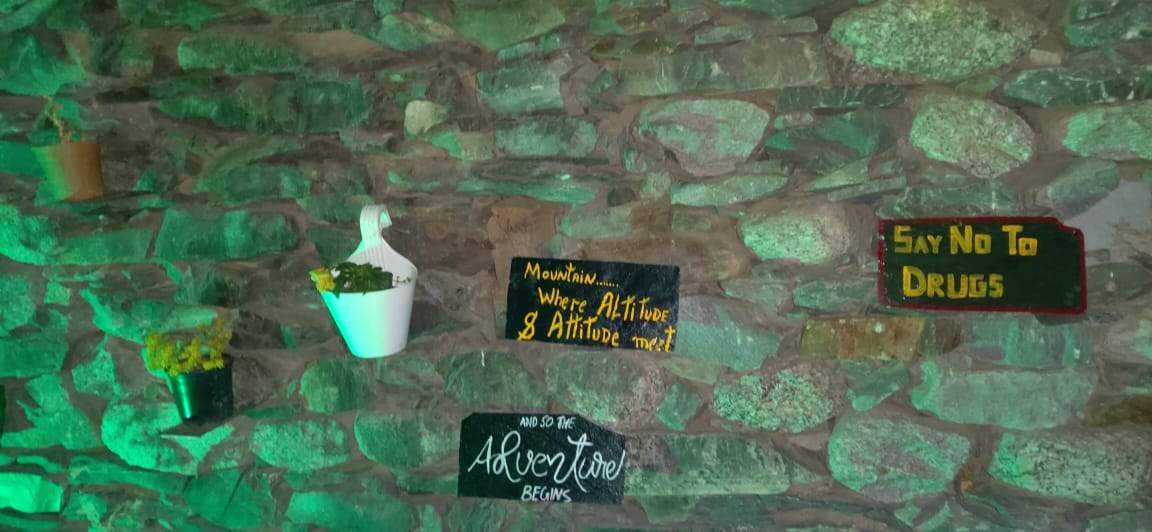 MOUNTAIN.......
Where ALTITUDE
& ATTITUDE meet
SAY NO TO
DRUGS
AND SO THE
Adventure
BEGINS